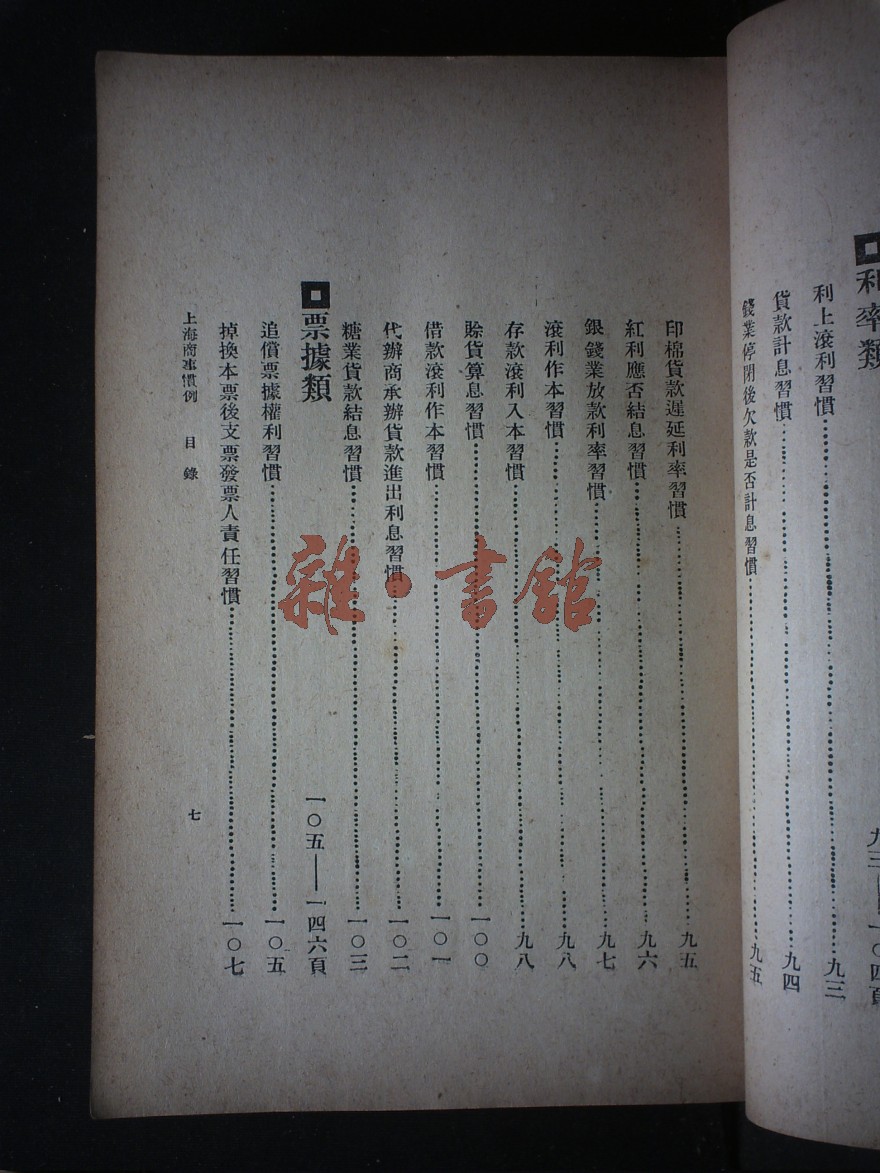 利率類 九三——一〇四頁
利上滾利習慣 九三
貨款計息習慣 九四
錢業停閉後欠款是否計息習慣 九五
印棉貨款遲延利率習慣 九五
紅利應否結息習慣 九六
銀錢業放款利率習慣 九七
滾利作本習慣 九八
存款滾利入本習慣 九八
賒貨算息習慣 一〇〇
借款滾利作本習慣 一〇一
代辦商承辦貨款進出利息習慣 一〇二
糖業貨款結息習慣 一〇三
票據類 一〇五——一四六頁
追償票據權利習慣 一〇五
掉換本票後支票發票人責任習慣 一〇七
上海商事慣例 目錄 七
雜·書館